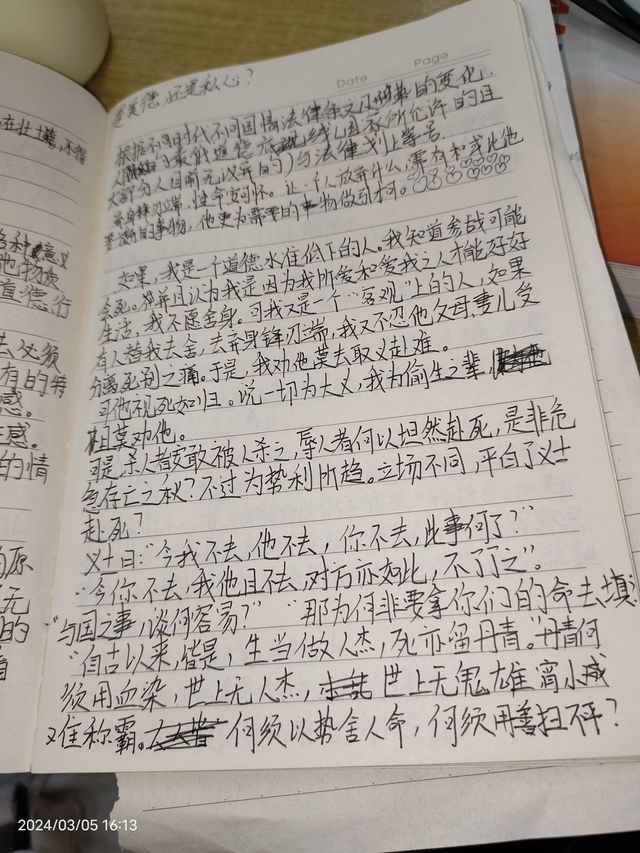 是美德,还是私心?
Date Page
根据不同时代不同国情法律条文及政策的变化.
最低道德底线(国家所允许的且
大部分人目前无议弃的)与法律划上等号。
弃身锋刃端,性命安可怀。让一个人放弃什么,需有和或比他
的事物,他更为需要的事物做引柯。
如果,我是一个道德水准低下的人,我知道参战可能
会死。并且认为我是因为我所爱和爱我之人才能好好
生活,我不愿舍身。可我又是一个“客观”上的人,如果
有人替我去舍,去弃身锋刃端,我又不忍他父母妻儿受
分离死别之痛。于是,我劝他莫去取义赴难。
可他不视死如归。说一切为大义,我为偷生之辈
且莫劝他。
可是杀人者敢被人杀之,辱人者何以坦然赴死,是非危
急存亡之秋?不过为势利所趋。立场不同,平白了义士
赴死?
义士曰:“今我不去,他不去,你不去,此事何了?”
“今你不去,我他且不去,对方亦如此,不了了之”。
“与国之事,谈何容易?”“那为何非要拿你们的命去填?
“自古以来,皆是,生当做人杰,死亦留丹青。”丹青何
须用血染,世上无人杰,世上无鬼雄宵小咸
难称霸。何须以势舍人命,何须用善扫不平?
在壮士籍,不得
意义
他物
道德行
去必须
有的特
感。
感。
的情
原
无
的
2024/03/05 16:13